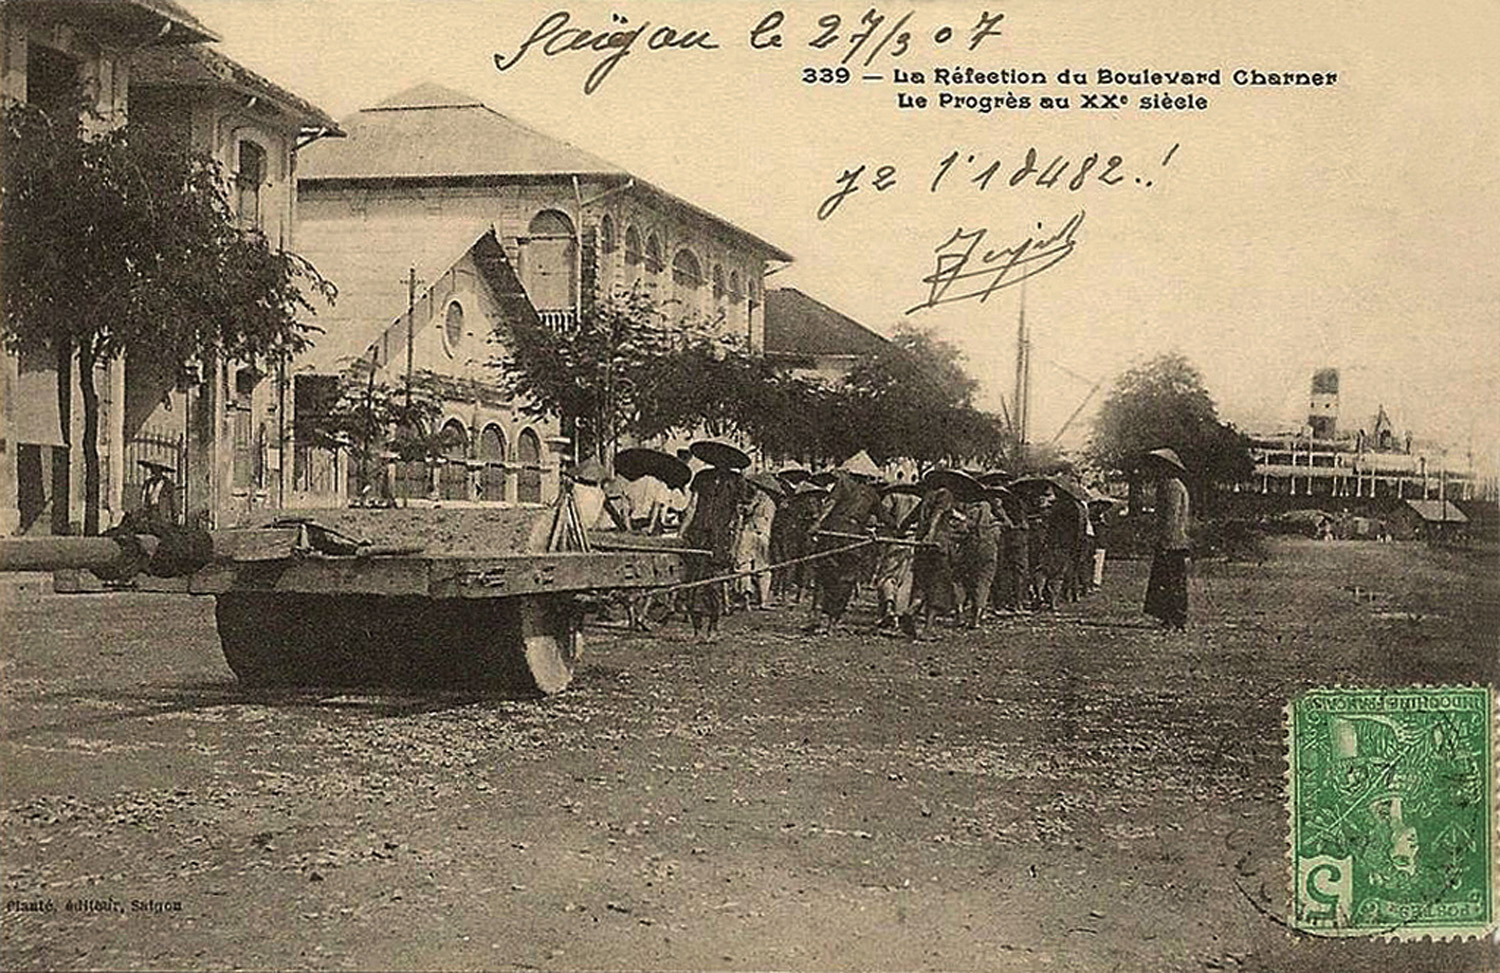 Saïgon le 27/3 07
339 — La Réfection du Boulevard Charner
Le Progrès au XXe siècle
Planté, éditeur, Saigon
INDOCHINE FRANÇAISE
POSTES
5